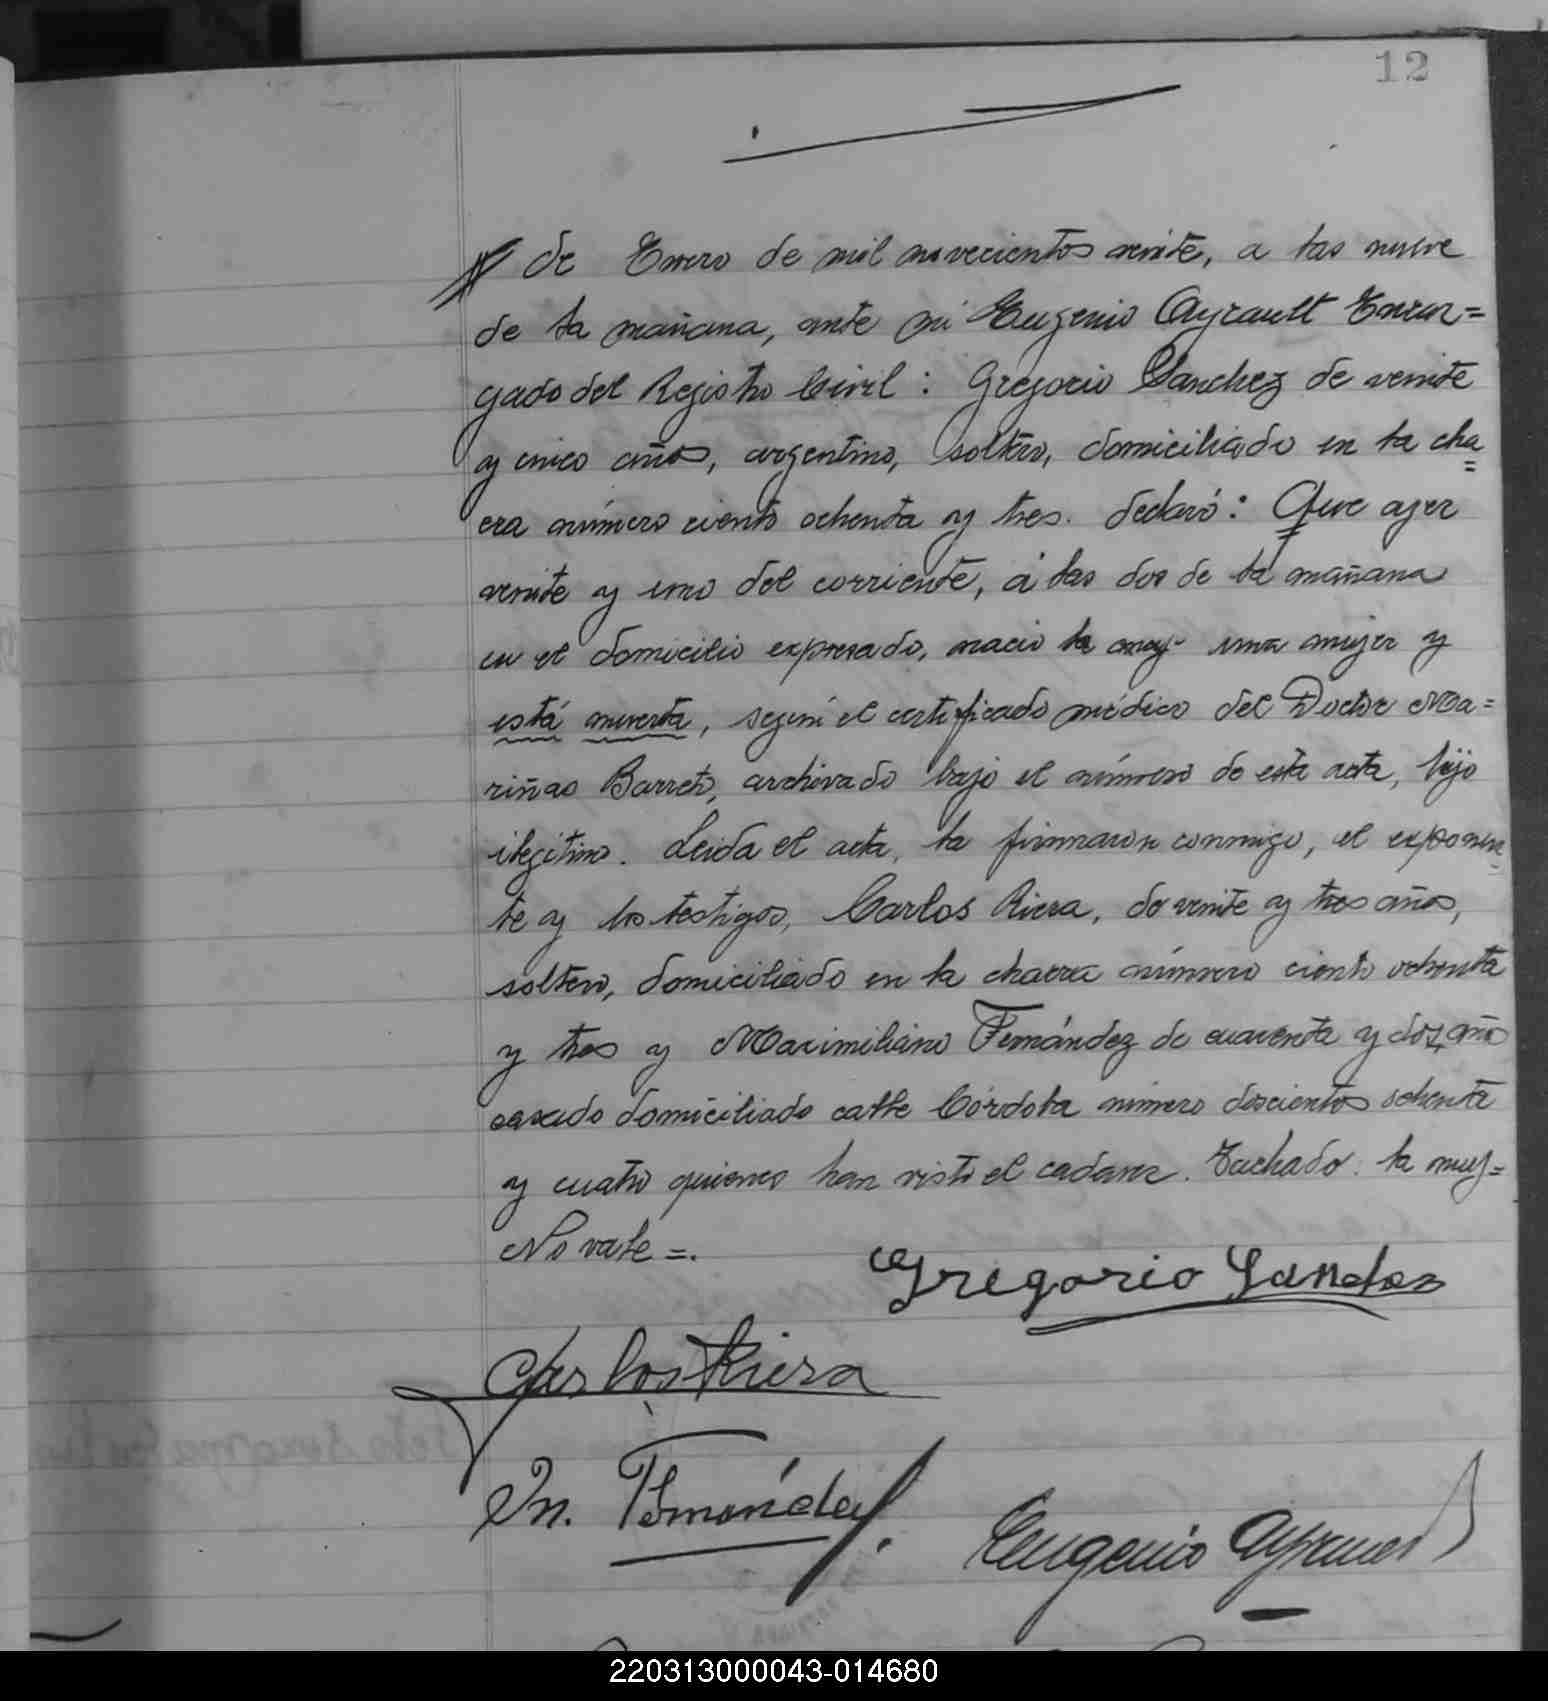 12
de Enero de mil novecientos veinte, a las nueve
de la mañana, ante mi Eugenio Ayrault Encar=
gado del Registro Civil: Gregorio Sanchez de veinte
y cinco años, argentino, soltero, domiciliado en la cha=
cra número ciento ochenta y tres. declaró: Que ayer
veinte y uno del corriente, á las dos de la mañana
en el domicilio expresado, nació la muj- una mujer y
está muerta, según el certificado médico del Doctor Ma=
riñas Barreto, archivado bajo el número de esta acta, hijo
ilegitimo. Leida el acta, la firmaron conmigo, el exponen=
te y los testigos, Carlos Riera, de veinte y tres años,
soltero, domiciliado en la chacra número ciento ochenta
y tres y Maximiliano Fernández de cuarenta y dos años
casado domiciliado calle Córdoba número doscientos ochenta
y cuatro quienes han visto el cadaver. Tachado: la muj=
No vale=.
Gregorio Sanchez
Carlos Riera
M. Fernández
Eugenio Ayrault
220313000043-014680